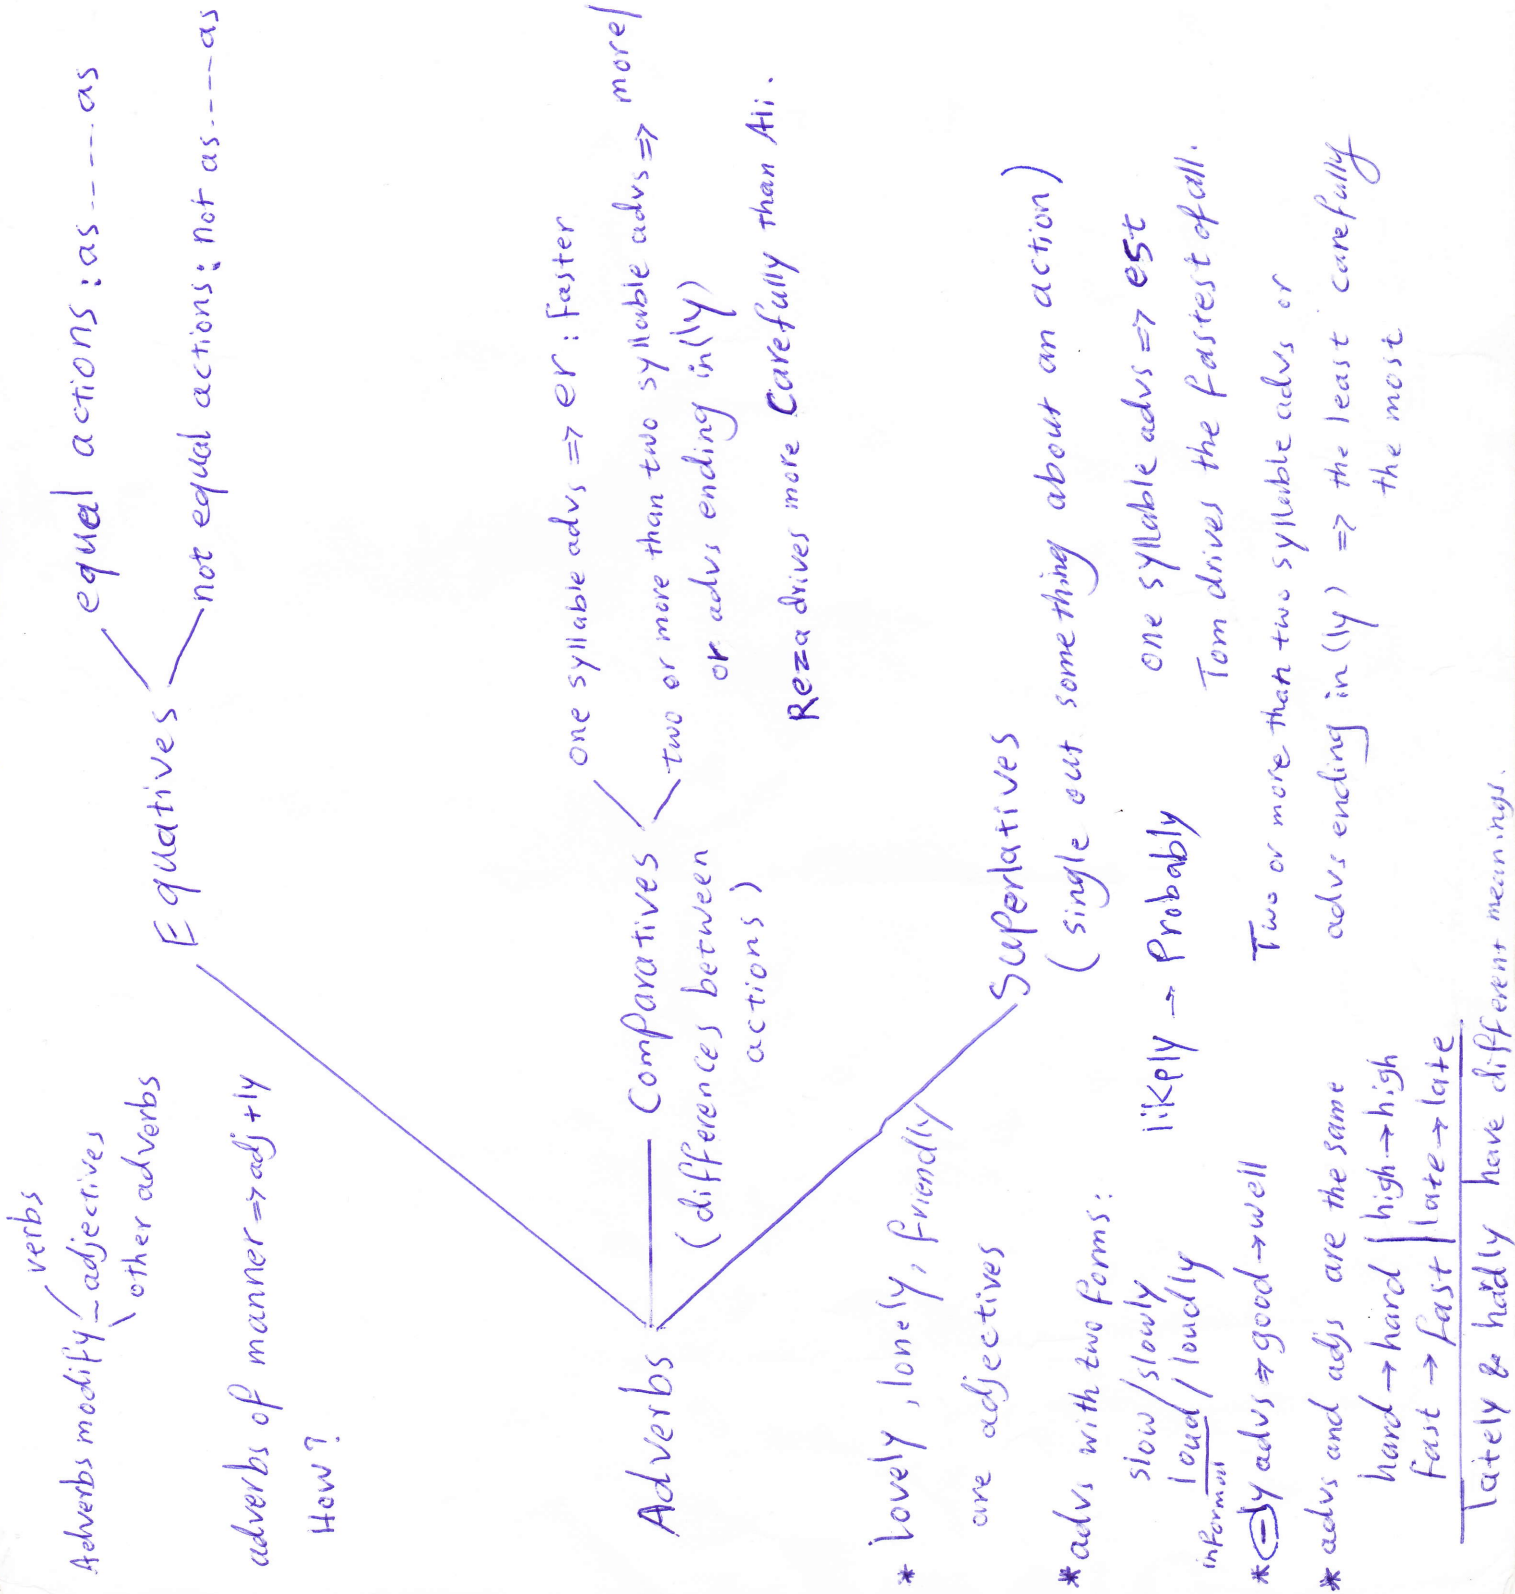 Adverbs modify
verbs
adjectives
other adverbs
adverbs of manner => adj + ly
How?
Adverbs
Equatives
equal actions : as ----- as
not equal actions : not as ----- as
Comparatives
(differences between
actions)
one syllable advs => er : faster
two or more than two syllable advs => more/
or advs ending in (ly)
Reza drives more Carefully than Ali.
Superlatives
(single out some thing about an action)
one syllable advs => est
Tom drives the fastest of all.
Two or more than two syllable advs or
advs ending in (ly) => the least carefully
the most
* lovely, lonely, friendly
are adjectives
likely → Probably
* advs with two forms:
slow / slowly
loud / loudly
informal
* -ly advs => good → well
* advs and adjs are the same
hard → hard | high → high
fast → fast | late → late
lately & hadly have different meanings.